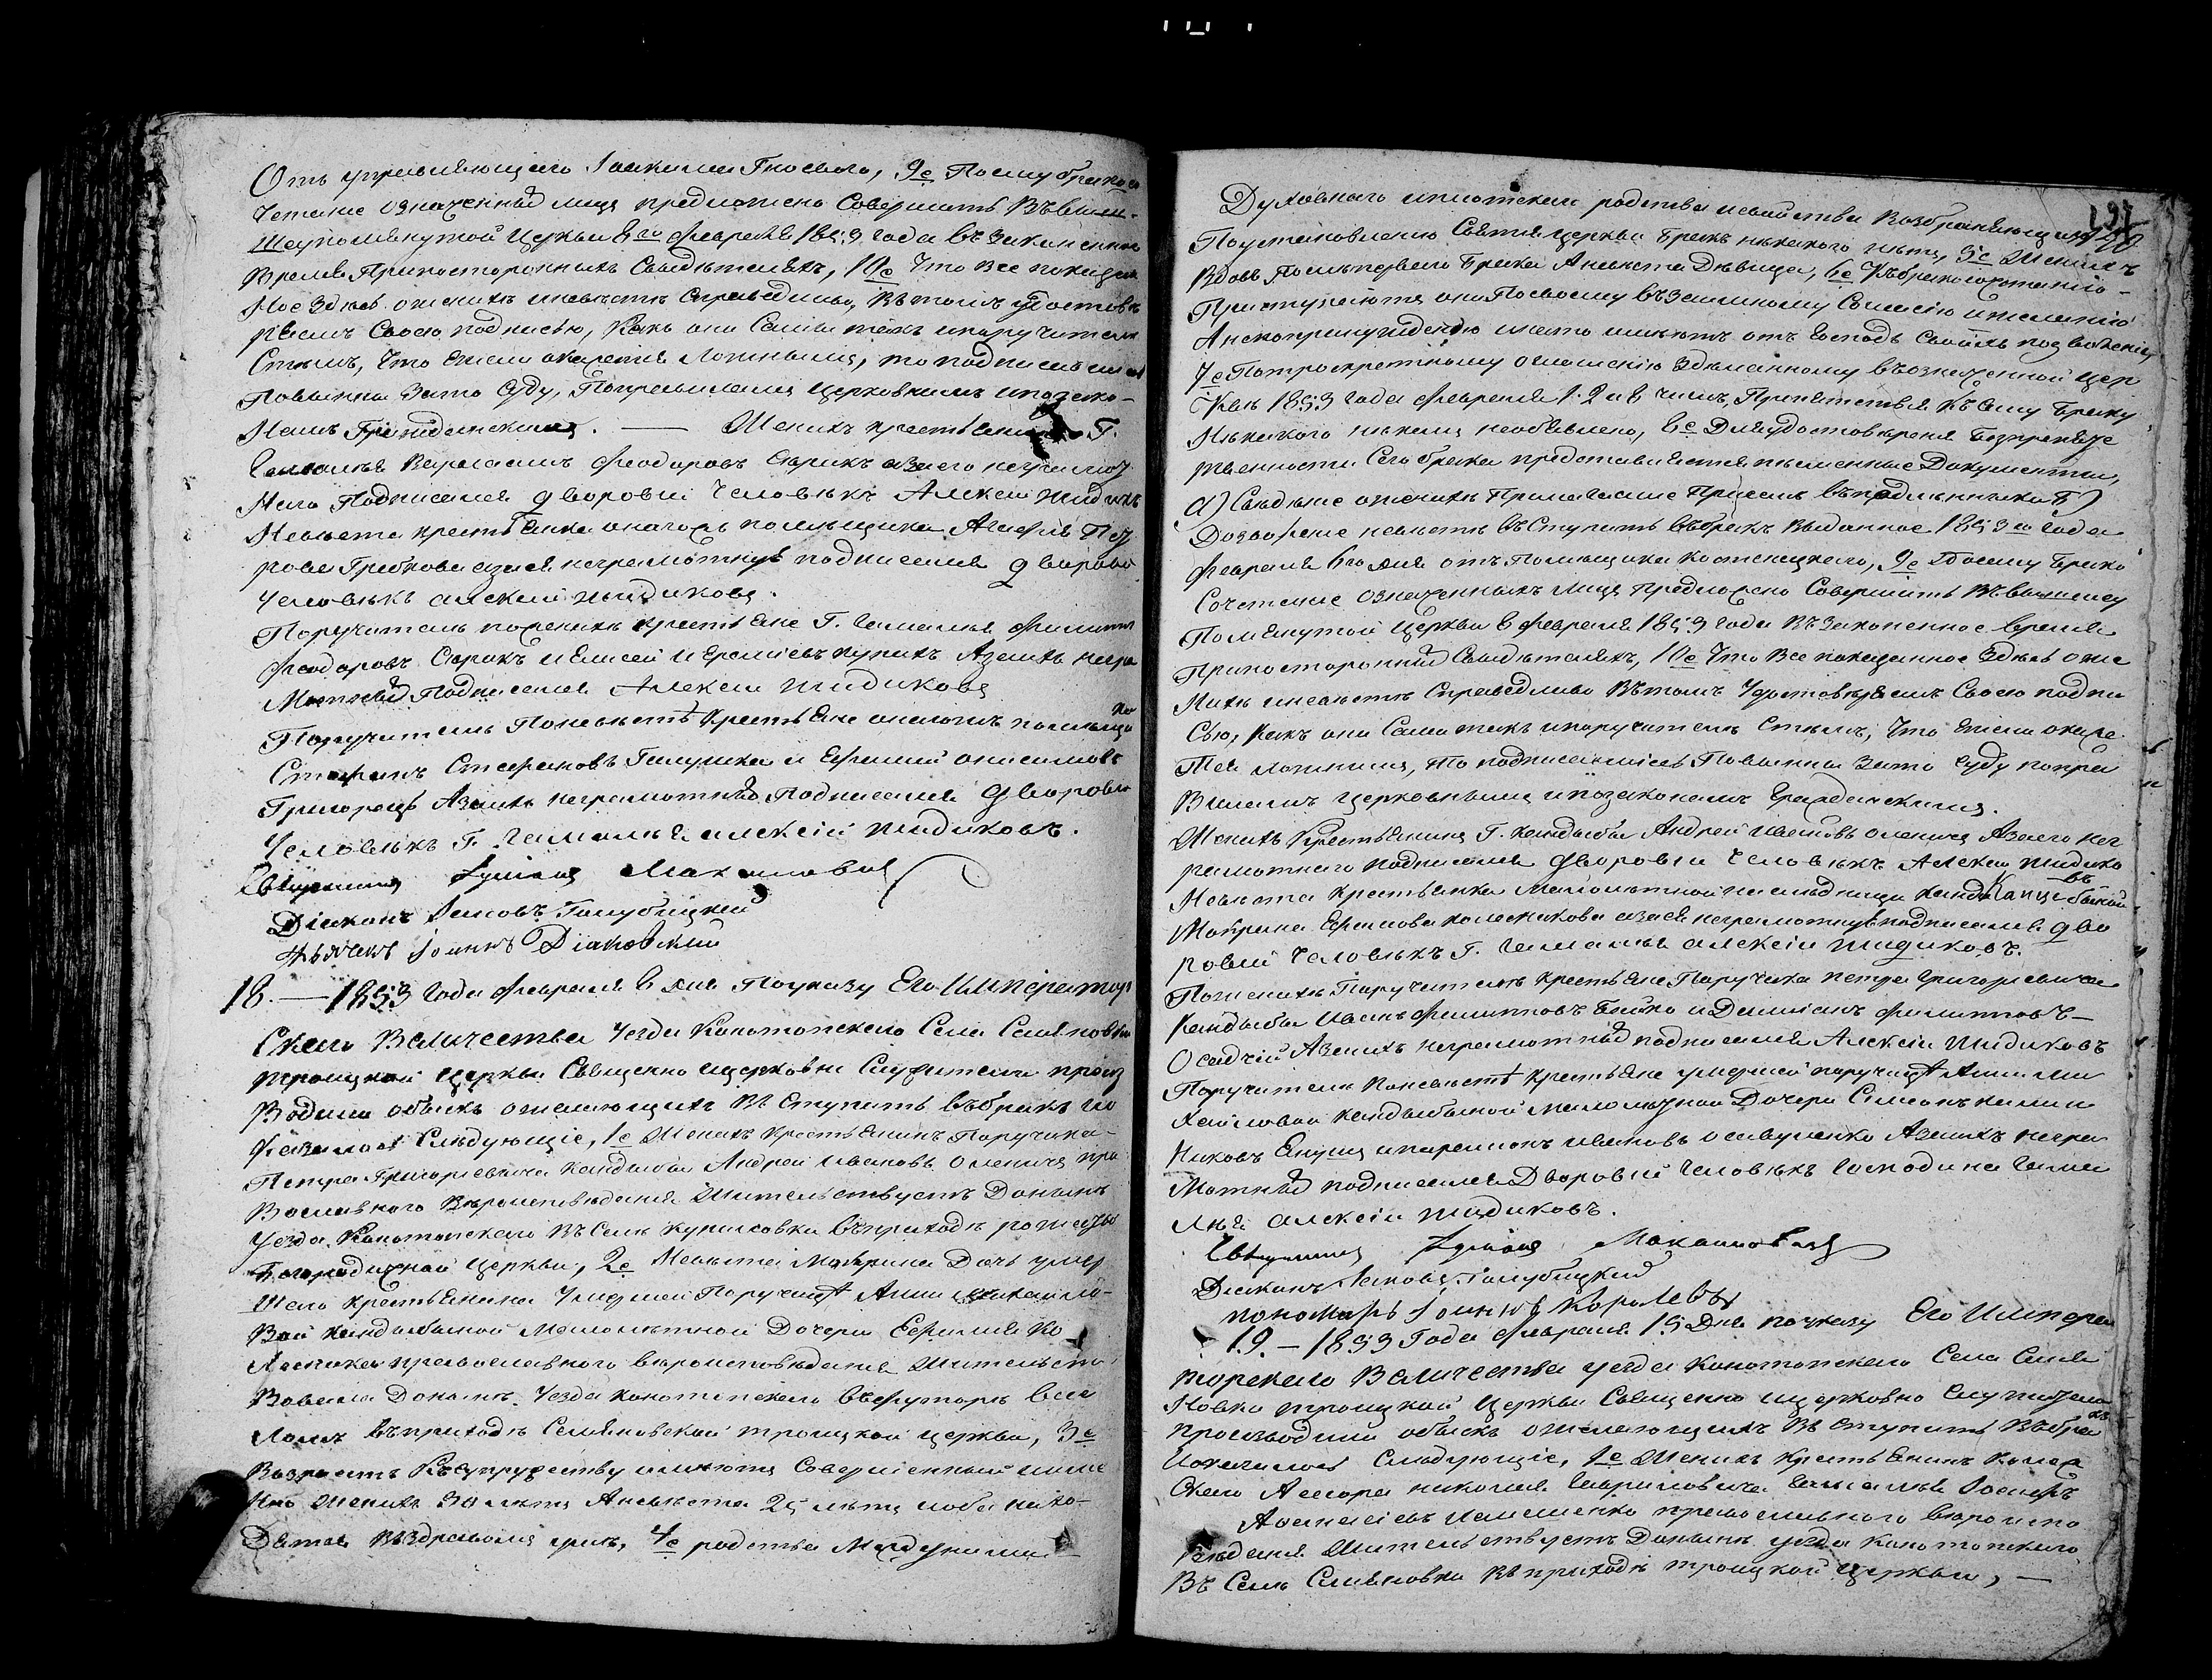 Отъ управляющаго Іоакима Гносваго, 9е Посему бракосо
четаніе означенныхъ лицъ предположено Совершить Въвыше-
шеупомянутой Церкви 8го февраля 1853 года въ Законенное
Время Припостороннихъ Свидѣтеляхъ, 10е Что Все показан
ное Здѣсь оженихѣ иневѣстѣ Справедливо, Вътомъ удостовѣ
ряемъ Своею подписью, Какъ они Сами такъ ипоручители
Стѣмъ, Что ежели окажется Ложнымъ, то подписавшіеся
Повинны Зато Суду, Поправиламъ Церковнымъ ипозако-
намъ Гражданскимъ. — Женихъ крестьянинъ Г.
Гамалѣя Варлаамъ Феодоровъ Сѣрикъ азаего неграмот
наго Подписался дворовій Человѣкъ Алексѣй Жидикъ
Невѣста крестьянка оногожъ помѣщика Агафія Пет
рова Грибкова азаея неграмотную подписался дворовій
Человѣкъ алексій жидиковъ.
Поручители поженихѣ крестьяне Г. Гамалѣя Филиппъ
Феодоровъ Сѣрикъ и Елисей Іереміевъ купихъ Азаихъ негра
мотныхъ Подписался Алексій Жидиковъ
Поручители Поневѣстѣ Крестьяне оногожъ помѣщика
Стефанъ Стефановъ Галушка и Ефимій онисимовъ
Григорецъ Азаихъ неграмотныхъ Подписался дворовій
Человѣкъ Г. Гамалѣя алексій жидиковъ.
Священникъ Максимовичъ
Діаконъ Іаковъ Голубицкій
Дьячекъ Іоаннъ Діаковскій
18. — 1853 Года Февраля 8 дня Поуказу Его Император
Скаго Величества Уезда Конотопскаго Села Семяновки
троицкой Церкви Священно ицерковно Служители произ
Водили обыскъ ожелающихъ въ Ступить въбракъ ио
казалось Слѣдующіе, 1е Женихъ крестьянинъ Поручика
Петра Григорьевича Кандыбы Андрей Ивановъ Оленичъ пра
Вославнаго Вѣроисповѣданія Жительствуетъ Донынѣ
Уезда Конотопскаго Въ Селѣ курилсовки въприходѣ рожество
Богородичной Церкви, 2е Невѣста Маврина Дочь умер
Шаго Крестьянина Умершей Поручицы Анны Михайло-
Вой Кандыбиной Малолѣтной Дочери Ефимія Ко
лесника православнаго вѣроисповѣданія Жительство
Вовала Донынѣ Уезда Конотопскаго въхуторѣ весе
ломъ въприходѣ Семяновской троицкой Церкви, 3е
Возрастъ Къ супружеству имѣютъ Совершенный имен
но Женихъ 30 лѣтъ Аневѣста 25 лѣтъ иоба нахо-
дятся Въздравомъ умѣ, 4е родства Междуними
Духовнаго иплотскаго родства исвойства Возбраняющаго
Поустановленію Святыя Церкви Бракъ никакого нѣтъ, 5е Женихъ
Вдовъ Послѣперваго Брака Аневѣста Дѣвица, 6е Къбракосочетанію-
Приступаютъ они Посвоему Взаимному Согласію ижеланію
Анепопринужденію инато имѣютъ отъ Господъ Своихъ позволеніе,
7е Потроекратному оглашенію Здѣланному въозначенной Цер
Квѣ 1853 Года Февраля 1. 2 и 8 чиселъ, Препятствія Къ Сему Браку
Никакого никемъ необъявлено, 8е Дляудостовѣренія Безпрепят
ственности Сего брака представляются письменные Документы,
а) Свѣденіе оженихѣ Прилагаемое Присемъ въподлинникѣ б)
Дозволеніе невѣстѣ въ Ступить въбракъ Выданное 1853го Года
Февраля 6го дня отъ Помѣщика Костенецкаго, 9е Посему Брако
Сочетаніе означенныхъ лицъ предположено Совершить Въвышеу
Помянутой Церкви 8 Февраля 1853 Года Въ Законенное Время
Припостороннихъ Свидѣтеляхъ, 10е Что Все показанное Здѣсь оже
нихѣ иневѣстѣ Справедливо Вътомъ Удостовѣряемъ Своею подпи
сью, Какъ они Сами такъ ипоручители Стѣмъ, Что ежели окаже
тся ложнымъ, то подписавшіеся Повинны Зато Суду попра
Виламъ Церковнымъ ипозаконамъ Гражданскимъ.
Женихъ Крестьянинъ Г. Кандыбы Андрей Ивановъ оленичъ Азаего нег
рамотнаго подписался дворовій Человѣкъ Алексій Жидико
въ
Невѣста Крестьянка Малолѣтной наслѣдницы Кандыбиной
Маврина Ефимова колесникова азаея неграмотную подписался дво
ровій Человѣкъ Г. Гамалѣя алексій жидиковъ.
Поженихѣ Поручители Крестьяне Поручика петра Григорьевича
Кандыбы Иванъ Филипповъ Бойко и Даміанъ Филипповъ-
Осадчій Азаихъ неграмотныхъ подписался Алексій Жидиковъ
Поручители Поневѣстѣ Крестьяне умершей поручицы Анны Ми
хайловой Кандыбиной Малолѣтной Дочери Симонъ
никовъ Енуша ипарамонъ Ивановъ осавуленко Азаихъ негра
мотныхъ подписался Дворовій Человѣкъ Господина Гама
лѣя алексій жидиковъ.
Священникъ Максимовичъ
Діаконъ Іаковъ Голубицкій
пономарь Іоаннъ Королевъ
19. — 1853 Года Февраля 15 Дня поуказу Его Импера
торскаго Величества уезда Конотопскаго Села Семя
новки троицкой Церкви Священно ицерковно Служители
производили обыскъ ожелающихъ въ Ступить Въбракъ
Иоказалось Слѣдующіе, 1е Женихъ Крестьянинъ Колеж
Скаго Асесора николая Гавриловича Гамалѣя Іосифъ
Афанасіевъ православнаго вѣроиспо
вѣданія Жительствуетъ Донынѣ уезда Конотопскаго
Въ Селѣ Семяновки Въ приходѣ троицкой Церкви, —